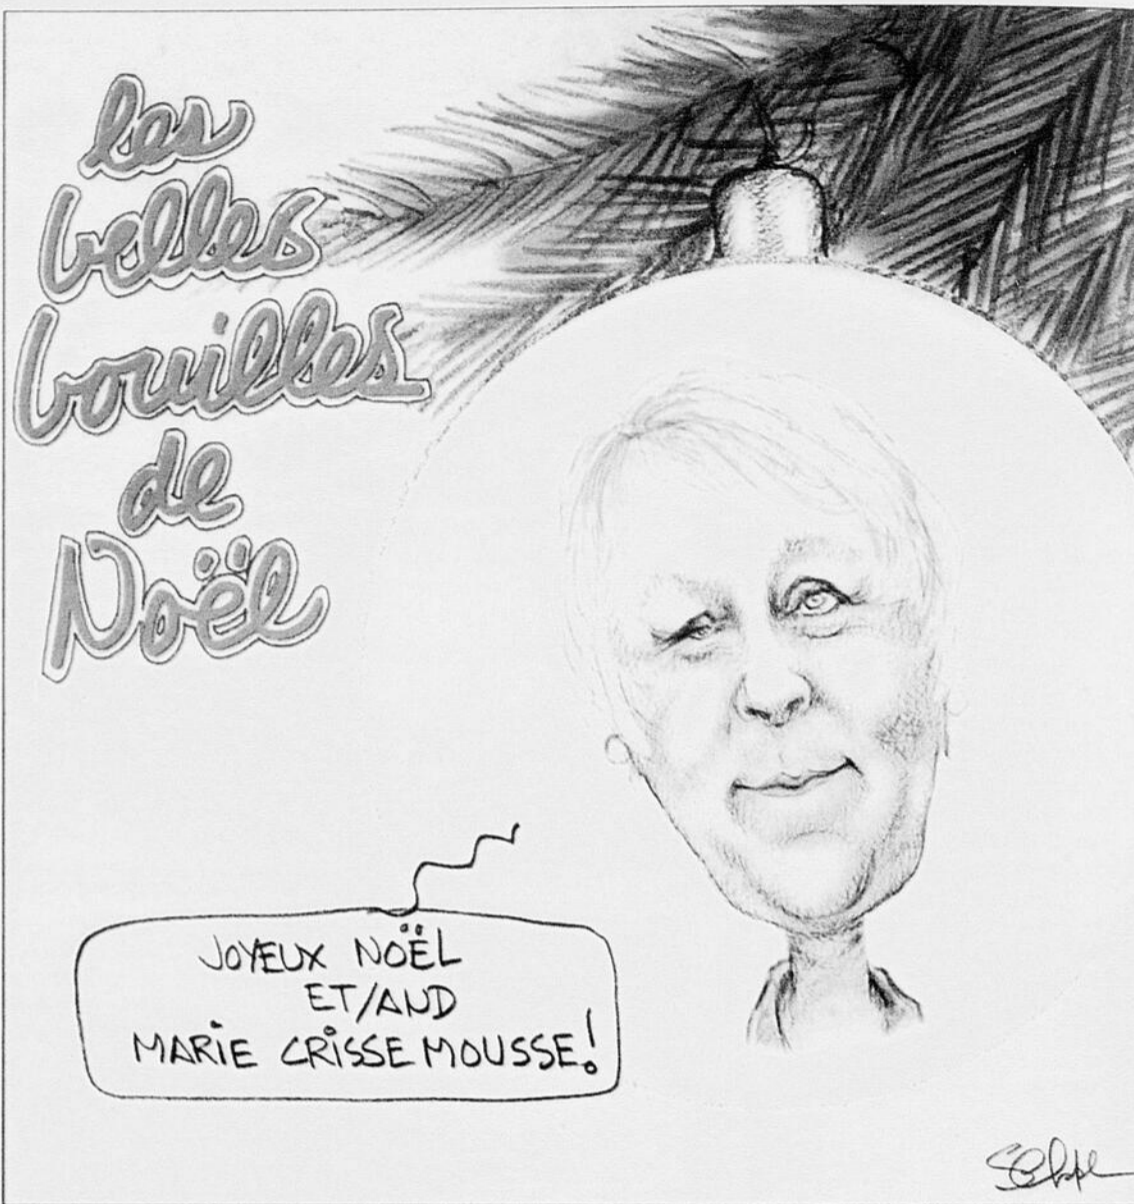 les
belles
bouilles
de
Noël
JOYEUX NOËL
ET/AND
MARIE CRISSE MOUSSE!